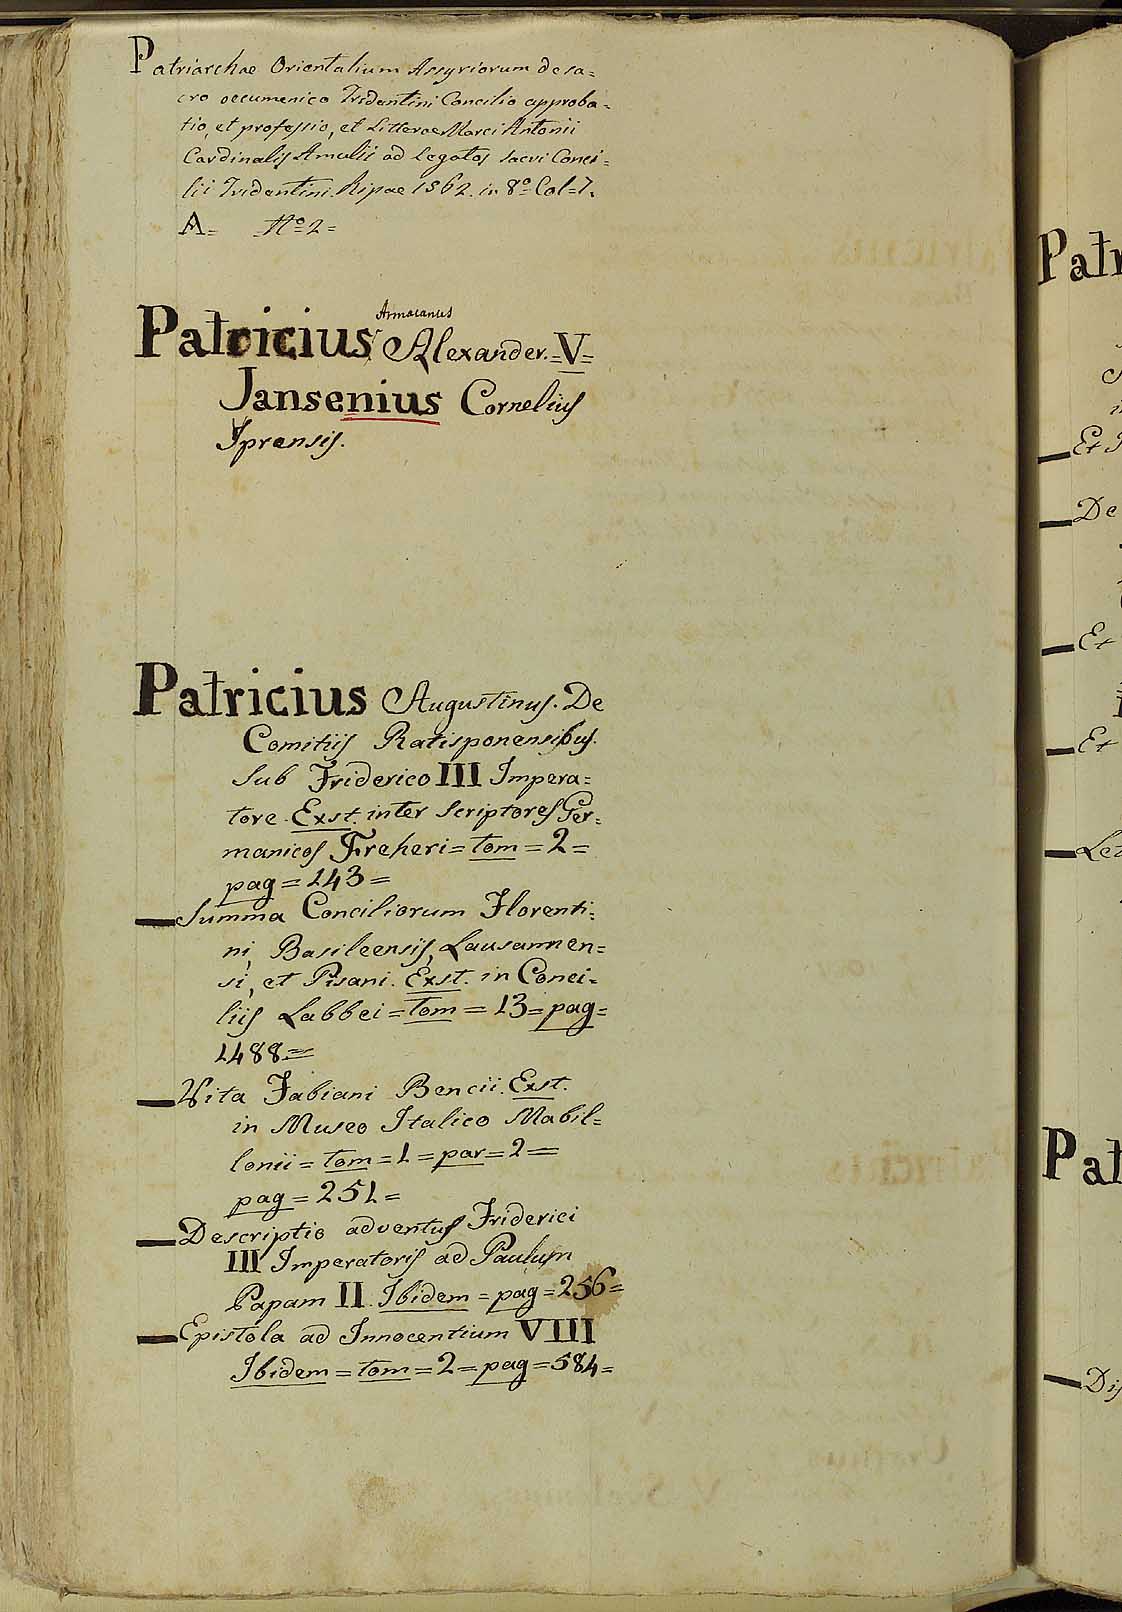 Patriarchae Orientalium Assyriorum de sa=
cro oecumenico Tridentini Concilio approba=
tio, et professio, et Litterae Marci Antonii
Cardinalis Amulii ad legatos sacri Conci=
lii Tridentini. Ripae 1562. in 8º Col=7.
A= Nº 2=
Armacanus
Patricius Alexander.=V=
Jansenius Cornelius
Iprensis.
Patricius Augustinus. De
Comitiis Ratisponensibus.
sub Friderico III Impera=
tore. Exst. inter Scriptores Ger=
manicos Freheri=tom=2=
pag=143=
Summa Conciliorum Florenti=
ni, Basileensis, Lausannen=
si, et Pisani. Exst. in Conci=
liis Labbei=tom=13=pag=
1488=
Vita Fabiani Bencii. Exst.
in Museo Italico Mabil=
lonii=tom=1=par=2=
pag=251=
Descriptio adventus Friderici
III Imperatoris ad Paulum
Papam II. Ibidem=pag=256=
Epistola ad Innocentium VIII
Ibidem=tom=2=pag=584=
Patr
Et
De
Et
Et
Let
Pat
Dis